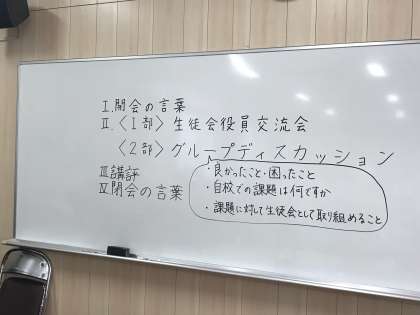 Ⅰ.開会の言葉
Ⅱ.〈1部〉生徒会役員交流会
〈2部〉グループディスカッション
・良かったこと・困ったこと
・自校での課題は何ですか
・課題に対して生徒会として取り組めること
Ⅲ講評
Ⅳ閉会の言葉